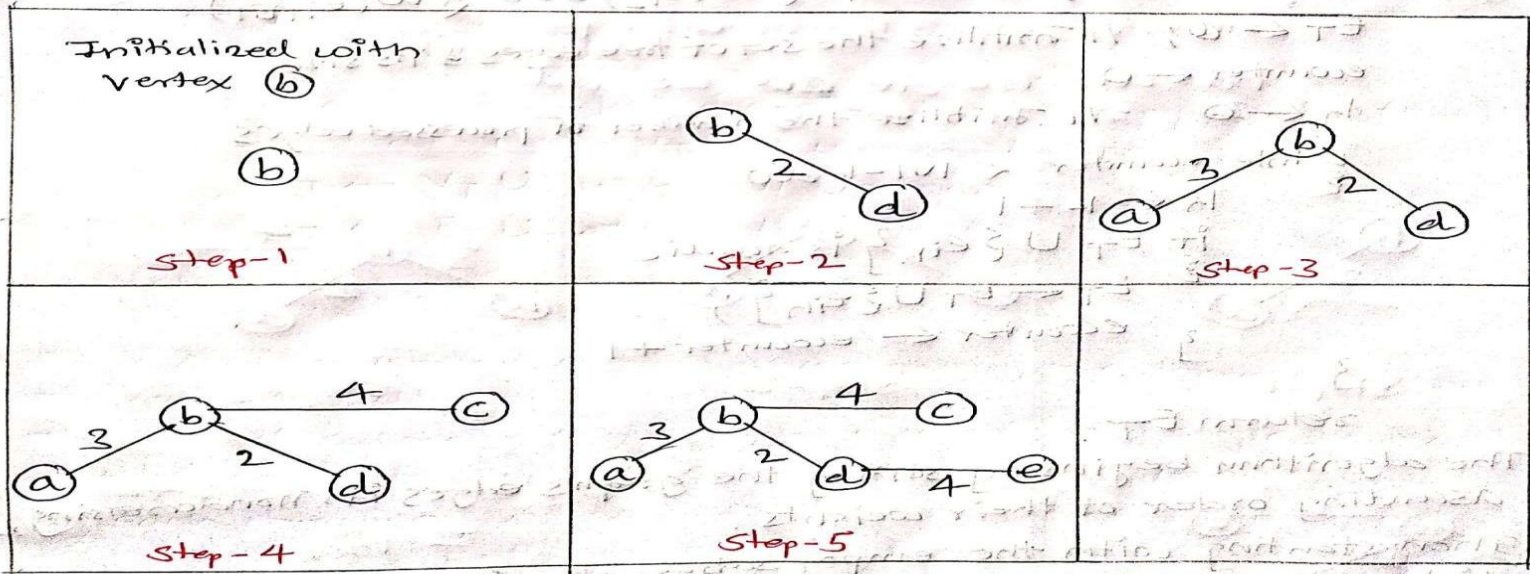 Initialized with
vertex b
b
Step-1
b
2
d
Step-2
b
3
2
a
d
Step-3
4
b
c
3
2
a
d
Step-4
4
b
c
3
2
a
d
e
4
Step-5